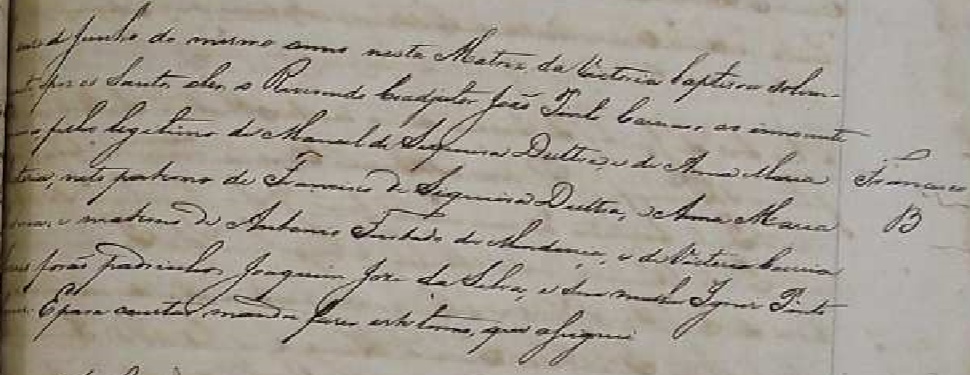 de Junho do mesmo anno nesta Matriz da Victoria baptisou solem-
os Santos oleos o Reverendo Coadjutor João Pinto ao innocente
filho legitimo de Manoel de Siqueira Dultra, e de Anna Maria
neto paterno de Francisco de Siqueira Dultra, e Anna Maria
e materno de Antonio Furtado de Mendonça, e de Victoria Correia
forão padrinhos Joaquim José da Silva, e sua mulher Ignes Pinto
E para constar mandei fazer este termo, que assignei
Francisco
B